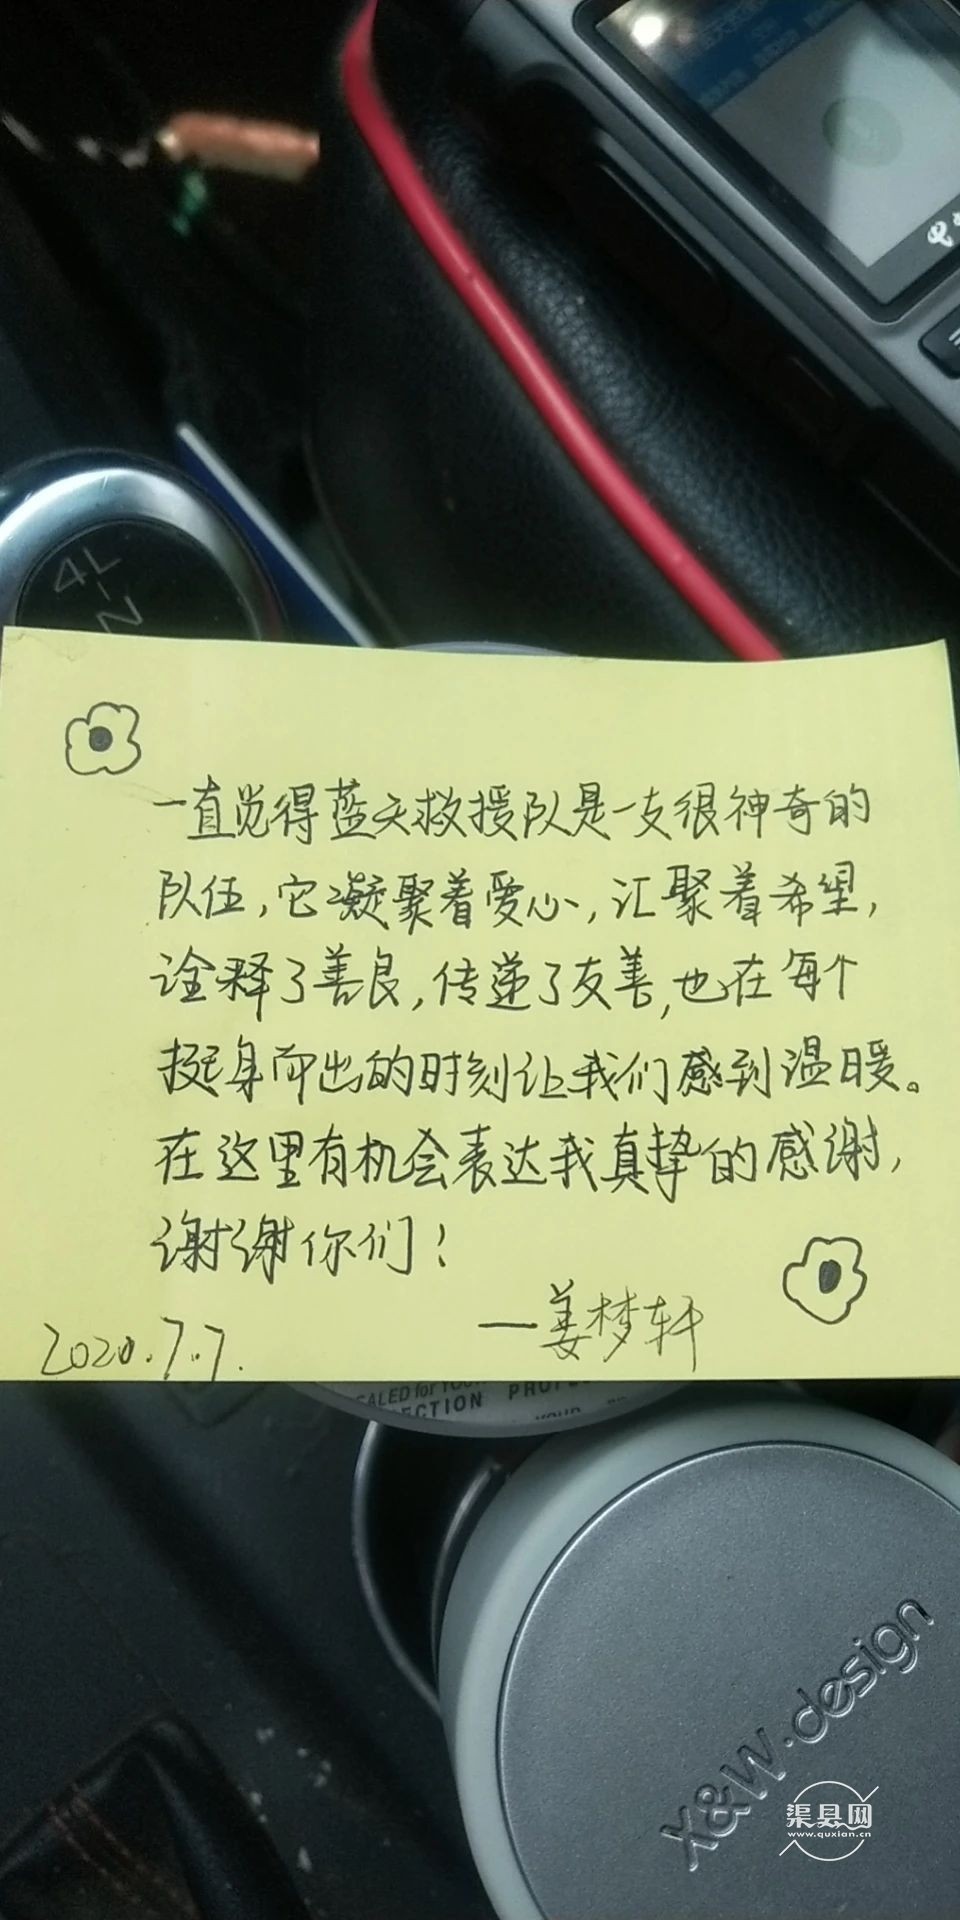 4L
N
一直觉得蓝天救援队是一支很神奇的
队伍,它凝聚着爱心,汇聚着希望,
诠释了善良,传递了友善,也在每个
挺身而出的时刻让我们感到温暖。
在这里有机会表达我真挚的感谢,
谢谢你们!
—姜梦轩
2020.7.7.
SEALED for YOU
ECTION
X&W.design
渠县网
www.quxian.cn